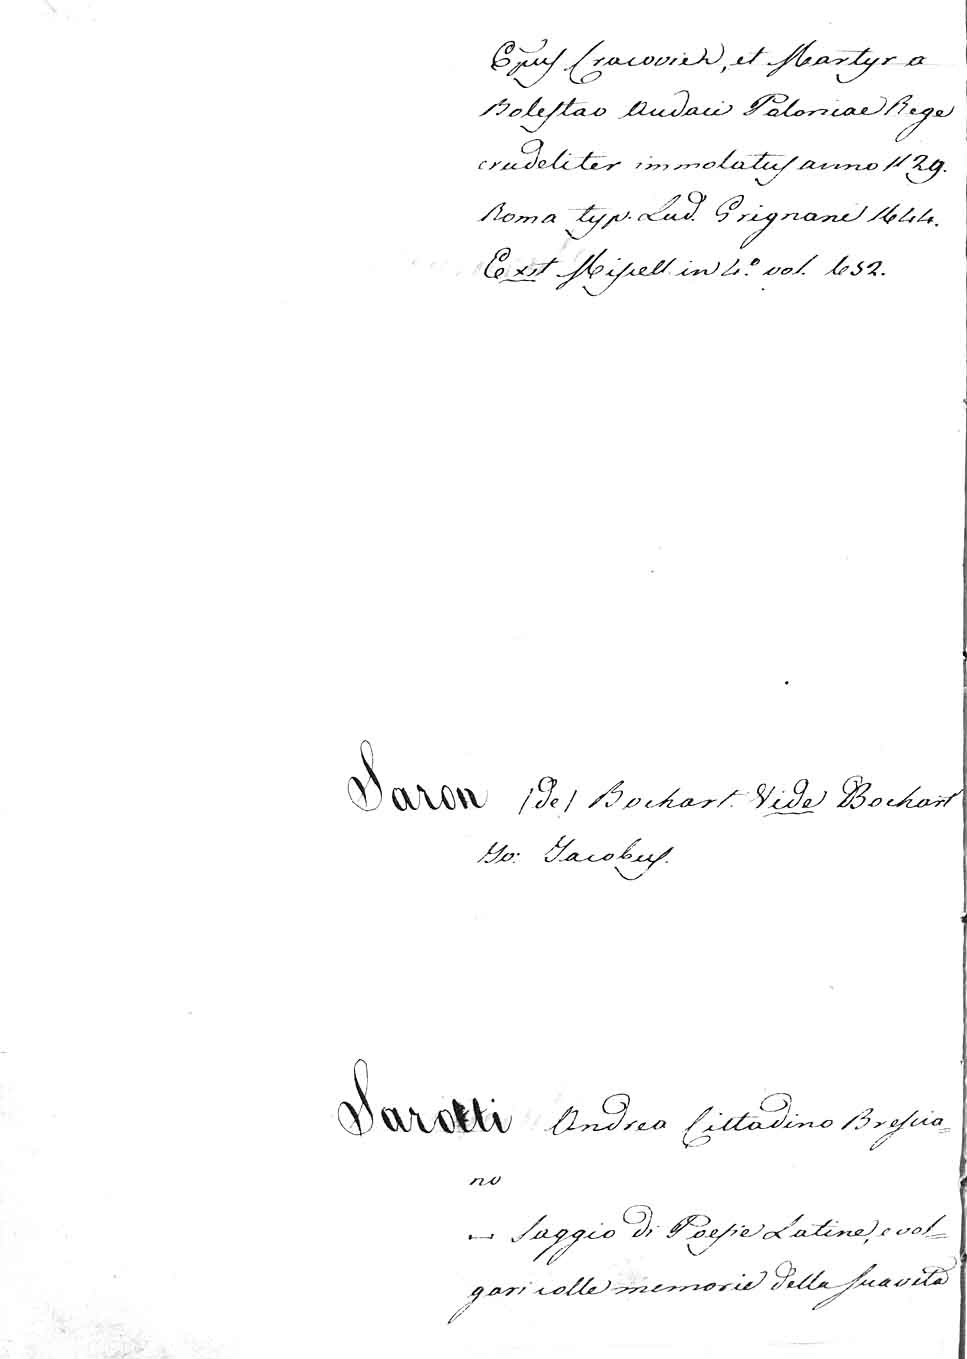 Epus Cracovien, et Martyr a
Boleslao Audaci Poloniae Rege
crudeliter immolatus anno 1129.
Roma typ. Lud. Grignani 1644.
Exst Miscell in 4.° vol. 652.
Saron (de) Bochart. Vide Bochart
Jo: Jacobus.
Sarotti Andrea Cittadino Brescia=
no
— Saggio di Poesie Latine, e vol=
gari colle memorie della suavità